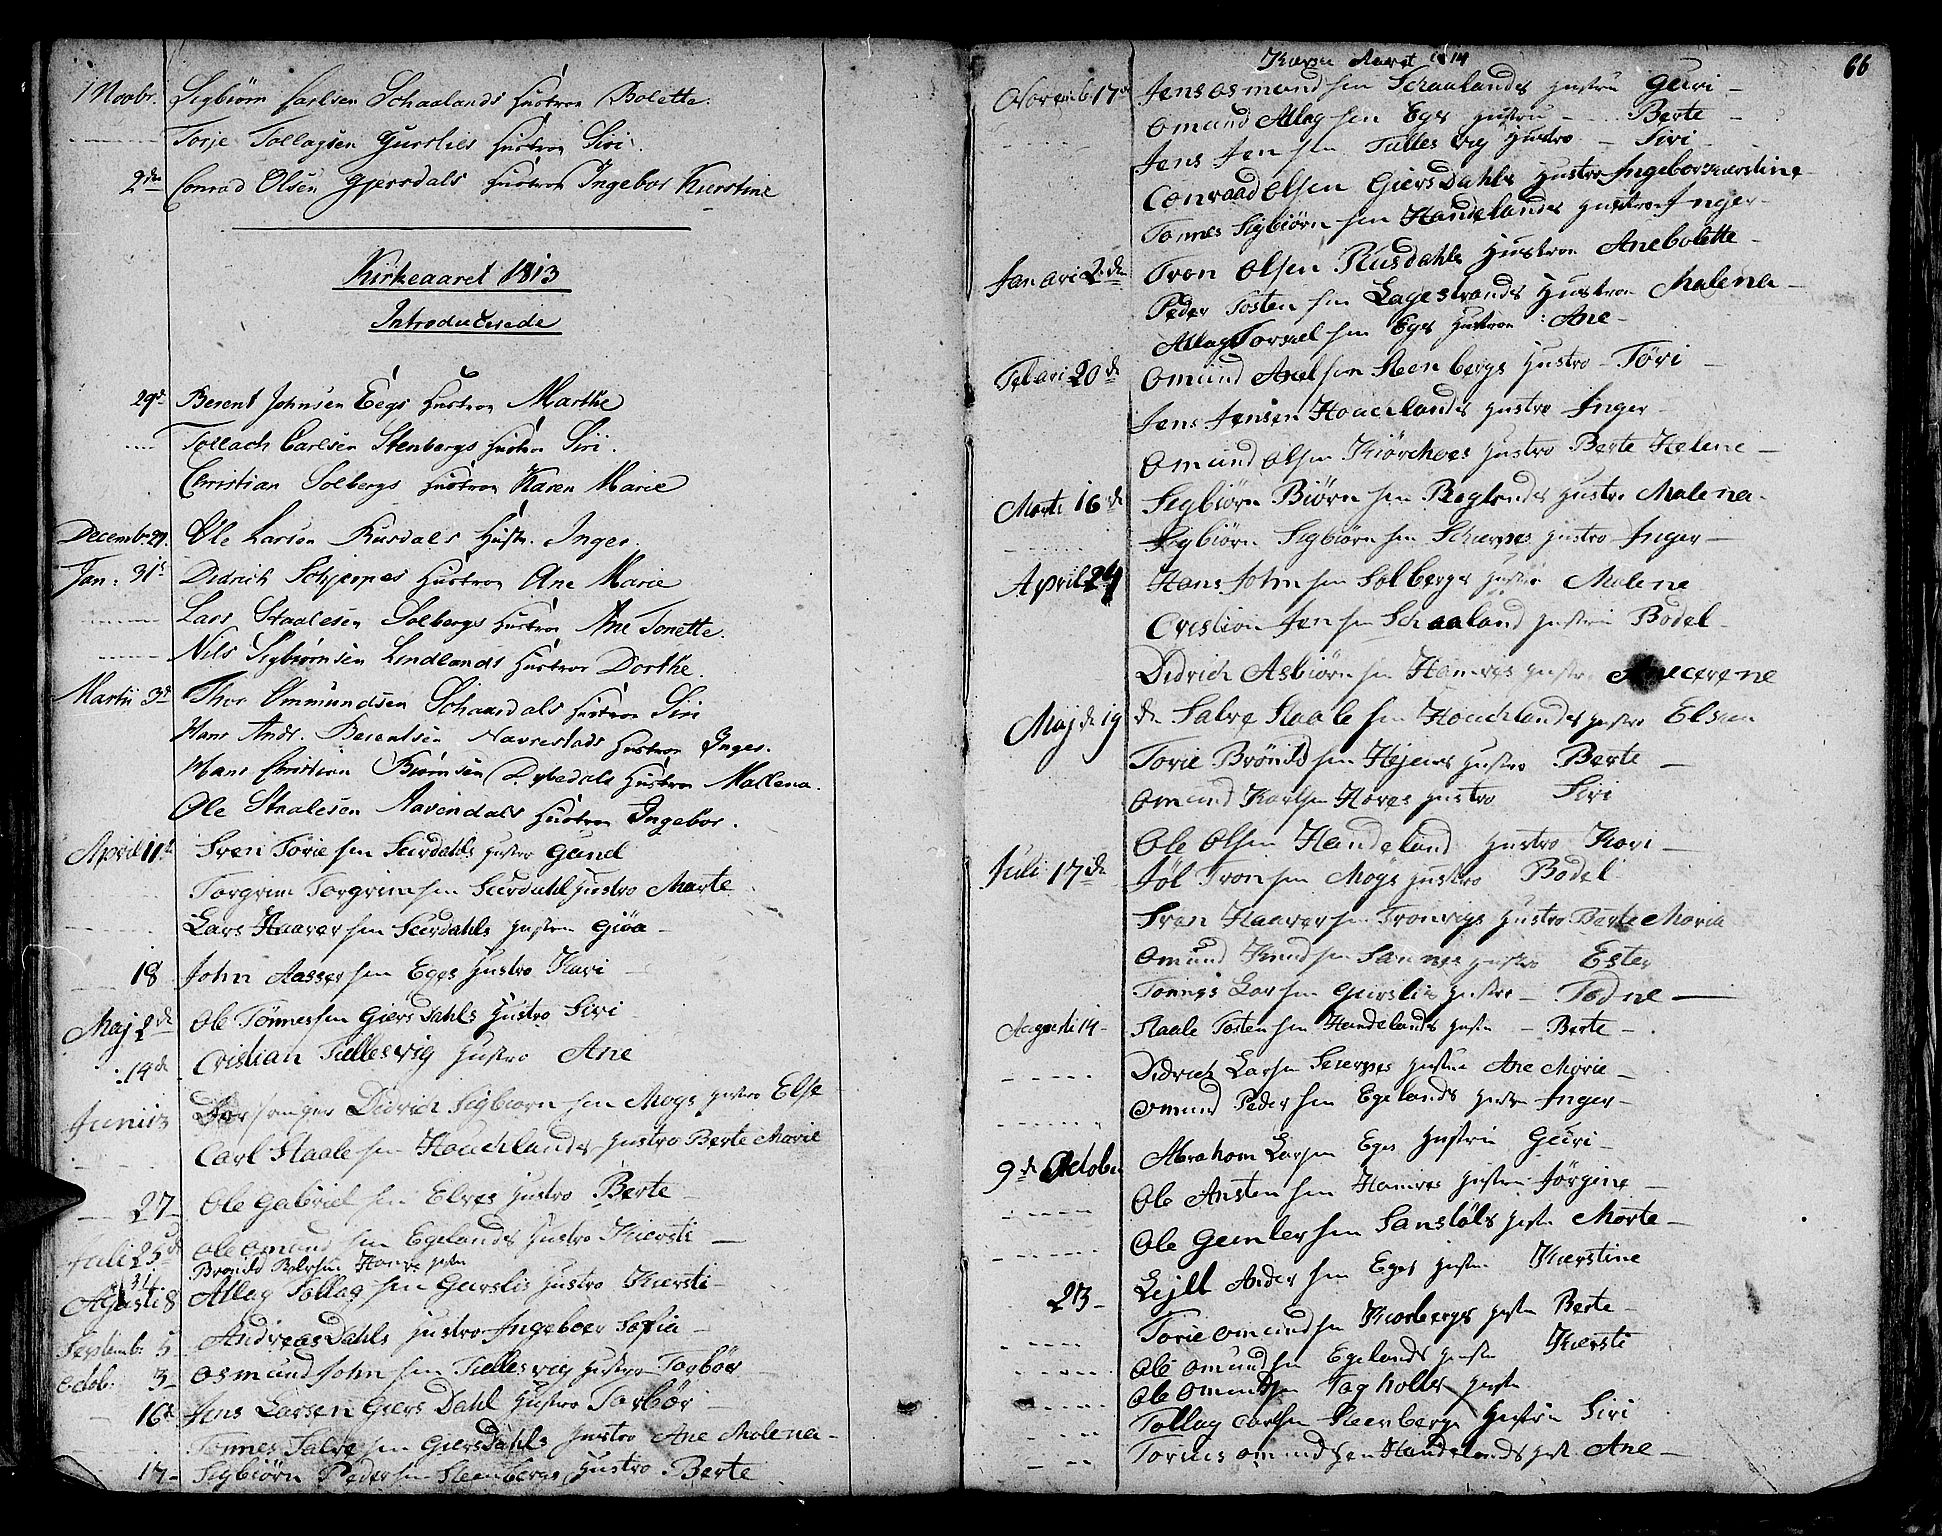 1 Novbr. Sigbiörn Carlsen Schaalands Hustroe Bolette.
Torje Tollagsen Gurslies Hustroe Siri.
2den Conrad Olsen Gjersdals Hustroe Ingebor Kierstine
Kirkeaaret 1813
Introducerede
29de Berent Johnsen Eegs Hustroe Marthe
Tollach Carlsen Stenbergs Hustroe Siri.
Christian Solbergs Hustroe Karen Marie
Decembr. 29. Ole Larsen Rusdals Hustr. Inger.
Jan: 31te Didrich Schjerpes Hustroe Ane Marie
Lars Staalesen Solbergs Hustroe Ane Tonette.
Nils Sigbiörnsen Lindlands Hustroe Dorthe.
Martii 3de Thor Ommundsen Schaardals Hustroe Siri
Hans Andr. Berentsen Navrestads Hustroe Inger.
Hans Christian Biörnsen Dybedals Hustroe Mallena.
Ole Staalesen Aavendals Hustroe Ingebor.
April 11te Sven Torie sen Surdahls Hustro Gund
Torgrim Torgrim sen Surdahl Hustro Marte
Lars Haaver sen Surdahls Hustro Giöa
18 John Aasser sen Eges Hustro Kari
Maj 2de Ole Tönnessen Giers Dahls Hustro Siri
14de Cristian Tullesvig Hustro Ane
Junii 13 Didrich Sigbiorn sen Mogs Hustro Else
Carl Staale sen Houchlands Hustro Berte Marie
27 Ole Gabriel sen Elves Hustro Berte
Juli 25de Ole Omund sen Egelands Hustro Kiersti
Hustro
Agusti 8 Atlag Tollag sen Gurslis Hustro Kiersti
Septemb: 5 Andreas Dahls Hustro Ingeboer Sofia
Octob. 3 Osmund John sen Tullesvig Hustro Torbör
16de Jens Larsen Giers Dahl Hustro Torbör
Tonnes Salve sen Giersdahls Hustro Ane Malena
17 Sigbiörn Peder sen Steenbergs Hustro Berte
66
Kierke Aaret 1814
Novemb 17de Jens Osmund sen Schaalands Hustru Guri
Omund Atlag sen Eges Hustru Berte
Jens Jen sen Tullesvig Hustro Siri
Conraad Olsen Giers Dahls Hustro Ingebor Kierstine
Tonnes Sigbiörn sen Handelands Hustroe Inger
Januari 2den Tron Olsen Rusdahls Hustroe Anebolette
Peder Tosten sen Lagestrands Hustroe Malena
Atlag Tormel sen Eges Hustroe Ane
Febari 20de Omund Axel sen Steenbergs Hustro Töri
Jens Jensen Houchlands Hustro Inger
Omund Olsen Kiörchoes Hustro Berte Helene
Marti 16de Sigbiörn Biörn sen Reglands Hustro Malena
Sigbiörn Sigbiörn sen Schierpes Hustro Inger
April 24 Hans John sen Solbergs Hustro Malene
Cristian Jen sen Schaaland Hustru Bodel
Didrich Asbiörn sen Hamres Hustro Anecerene
Maj de 19 de Salve Staale sen Houchlands Hustro Elsien
Torie Brönild sen Hejens Hustro Berte
Omund Karlsen Hoves Hustro Siri
Ole Olsen Handeland Hustro Kari
Juli 17de Jöl Tron sen Mögs Hustro Bodel
Sven Haaver sen Tronvigs Hustro Berte Maria
Omund Knud sen Sannes Hustro Ester
Tönnes Lar sen Gurslis Hustro Todne
Augusti 14 Staale Tosten sen Handelands Hustro Berte
Didrich Larsen Scierpes Hustru Ane Marie
Omund Peder sen Egelands Hustro Inger
9de Octobr Abraham Larsen Eges Hustru Guri
Ole Ansten sen Hamres Hustru Jörgine
Ole Gunler sen Sanstöls Hustru Marte
Lejll Ander sen Eges Hustru Kierstine
23 Torie Omund sen Kiorbergs Hustru Berte
Ole Omund sen Egelands Hustru Kiersti
Ole Omund sen Tagholts Hustru
Tollag Carlsen Steenbergs Hustru Siri
Torius Omund sen Handelands Hustru Ane